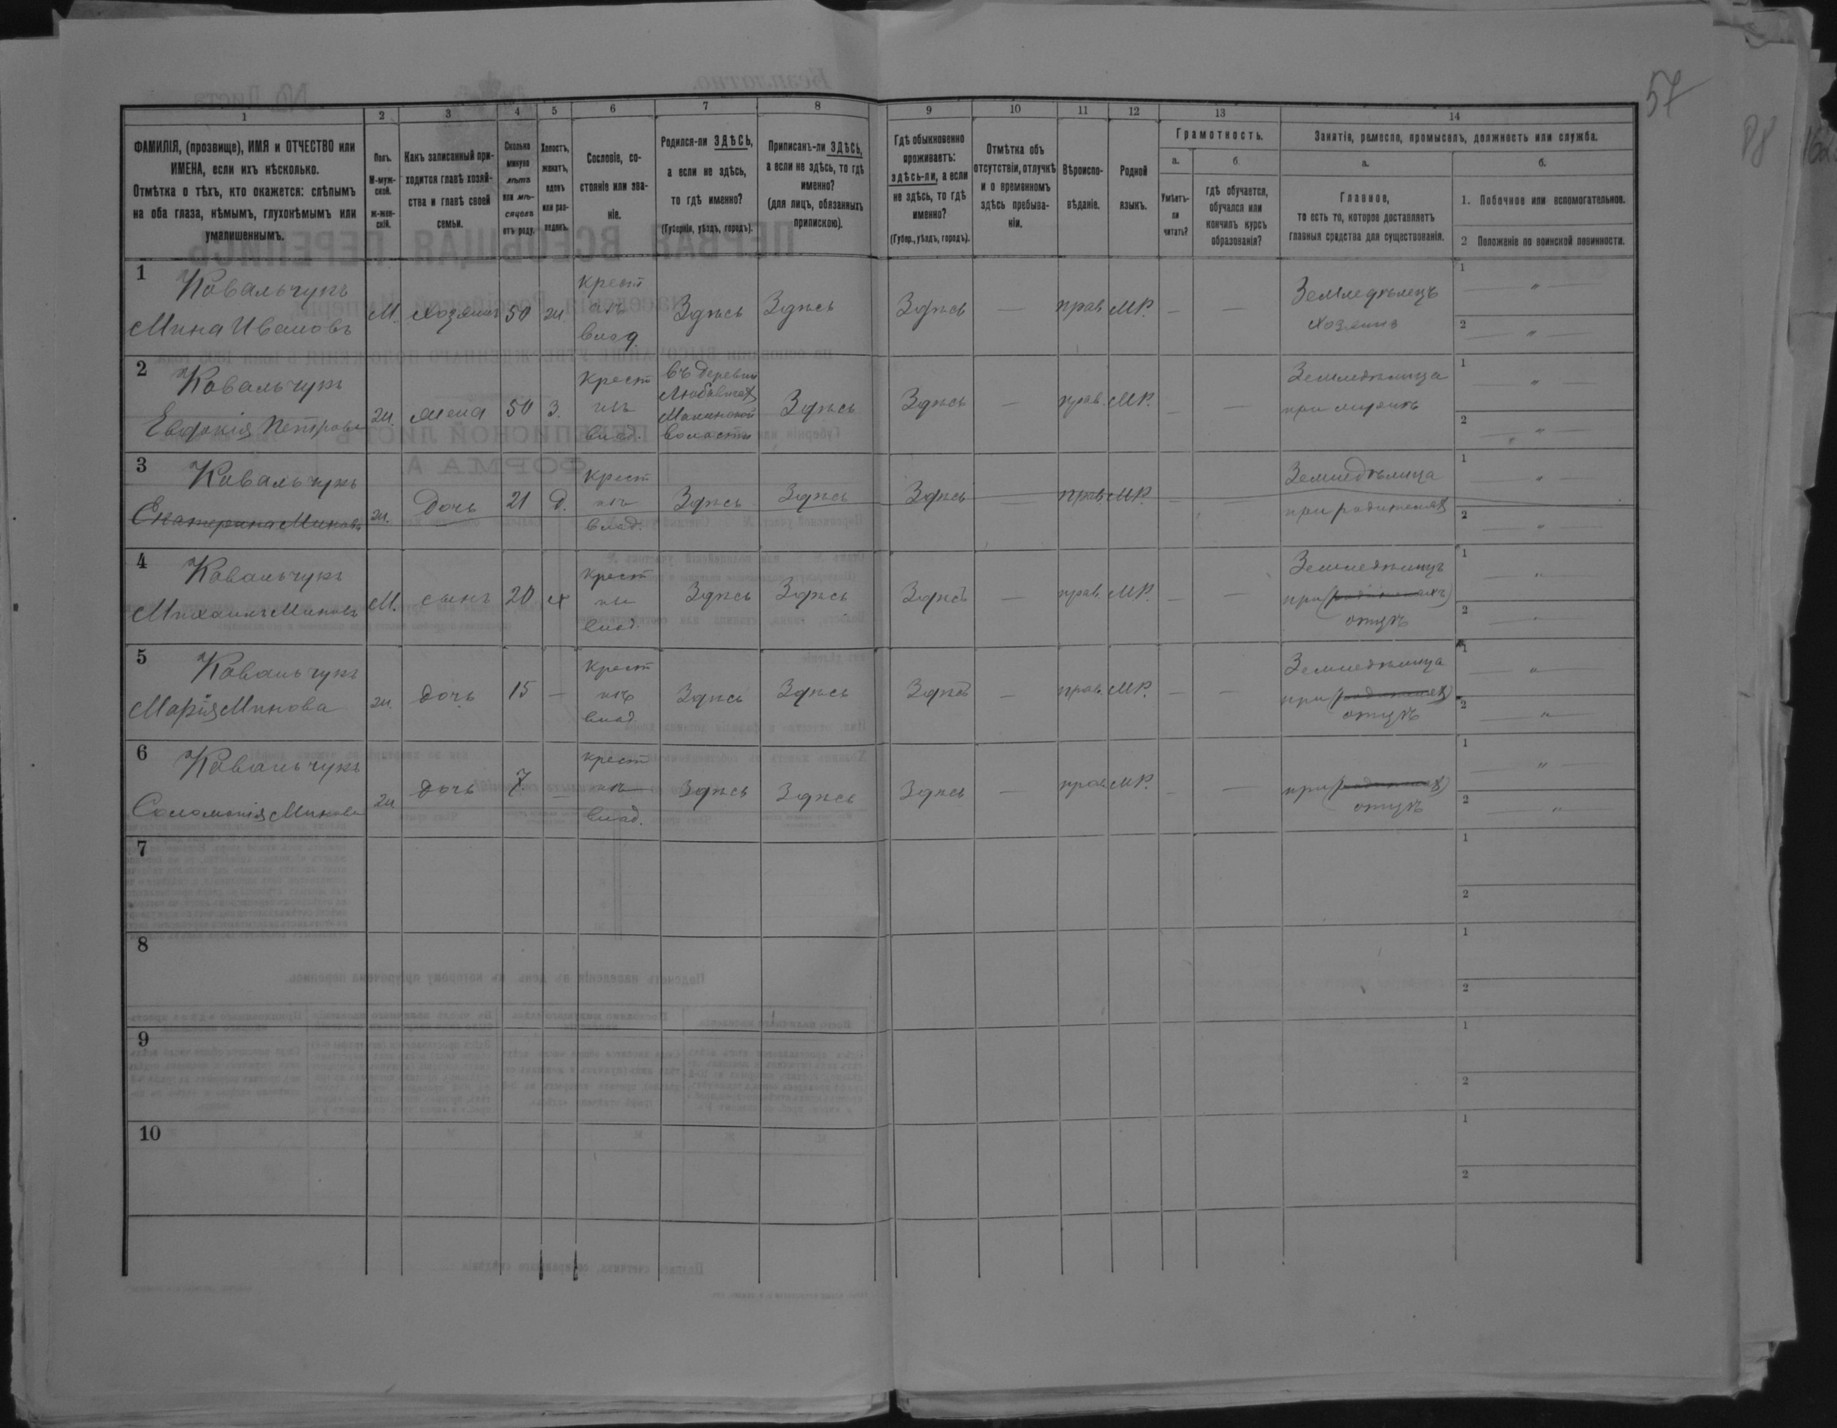 57
1
2
3
4
5
6
7
8
9
10
11
12
13
14
ФАМИЛІЯ, (прозвище), ИМЯ и ОТЧЕСТВО или
ИМЕНА, если ихъ нѣсколько.
Отмѣтка о тѣхъ, кто окажется: слѣпымъ
на оба глаза, нѣмымъ, глухонѣмымъ или
умалишеннымъ.
Полъ.
М-муж-
ской.
ж-жен-
скій.
Какъ записанный при-
ходится главѣ хозяй-
ства и главѣ своей
семьи.
Сколько
минуло
лѣтъ
или мѣ-
сяцевъ
отъ роду.
Холостъ,
женатъ,
вдовъ
или раз-
веденъ.
Сословіе, со-
стояніе или зва-
ніе.
Родился-ли ЗДѢСЬ,
а если не здѣсь,
то гдѣ именно?
(Губернія, уѣздъ, городъ).
Приписанъ-ли ЗДѢСЬ,
а если не здѣсь, то гдѣ
именно?
(для лицъ, обязанныхъ
припискою).
Гдѣ обыкновенно
проживаетъ:
здѣсь-ли, а если
не здѣсь, то гдѣ
именно?
(Губер., уѣздъ, городъ).
Отмѣтка объ
отсутствіи, отлучкѣ
и о временномъ
здѣсь пребыва-
ніи.
Вѣроиспо-
вѣданіе.
Родной
языкъ.
Грамотность.
а.
б.
Умѣетъ-
ли
читать?
гдѣ обучается,
обучался или
кончилъ курсъ
образованія?
Занятіе, ремесло, промыселъ, должность или служба.
а.
б.
Главное,
то есть то, которое доставляетъ
главныя средства для существованія.
1. Побочное или вспомогательное.
2 Положеніе по воинской повинности.
1
Ковальчукъ
Мина Ивановъ
М. хозяинъ 50 ж.
крест
изъ
влад.
Здѣсь Здѣсь Здѣсь — прав. МР. — —
Земледѣлецъ
хозяинъ
1 "
2 "
2
Ковальчукъ
Евфимія Петрова
ж. жена 50 З.
крест
изъ
влад.
въ деревни
Малинской
волости
Здѣсь Здѣсь — прав. МР. — —
Земледѣлица
при мужѣ
1 "
2 "
3
Ковальчукъ
Екатерина Минова
ж. Дочь 21 Д.
крест
изъ
влад.
Здѣсь Здѣсь Здѣсь — прав. МР. — —
Земледѣлица
при родителях
1 "
2 "
4
Ковальчукъ
Михаилъ Миновъ
М. сынъ 20 х
крест
изъ
влад.
Здѣсь Здѣсь Здѣсь — прав. МР. — —
Земледѣлецъ
при (родителяхъ)
отцѣ
1 "
2 "
5
Ковальчукъ
Марія Минова
ж. дочь 15 —
крест
изъ
влад.
Здѣсь Здѣсь Здѣсь — прав. МР. — —
Земледѣлица
при (родителях)
отцѣ
1 "
2 "
6
Ковальчукъ
Соломонія Минова
ж дочь 7 —
крест
изъ
влад.
Здѣсь Здѣсь Здѣсь — прав. МР. — —
при (родителях)
отцѣ
1 "
2 "
7
1
2
8
1
2
9
1
2
10
1
2